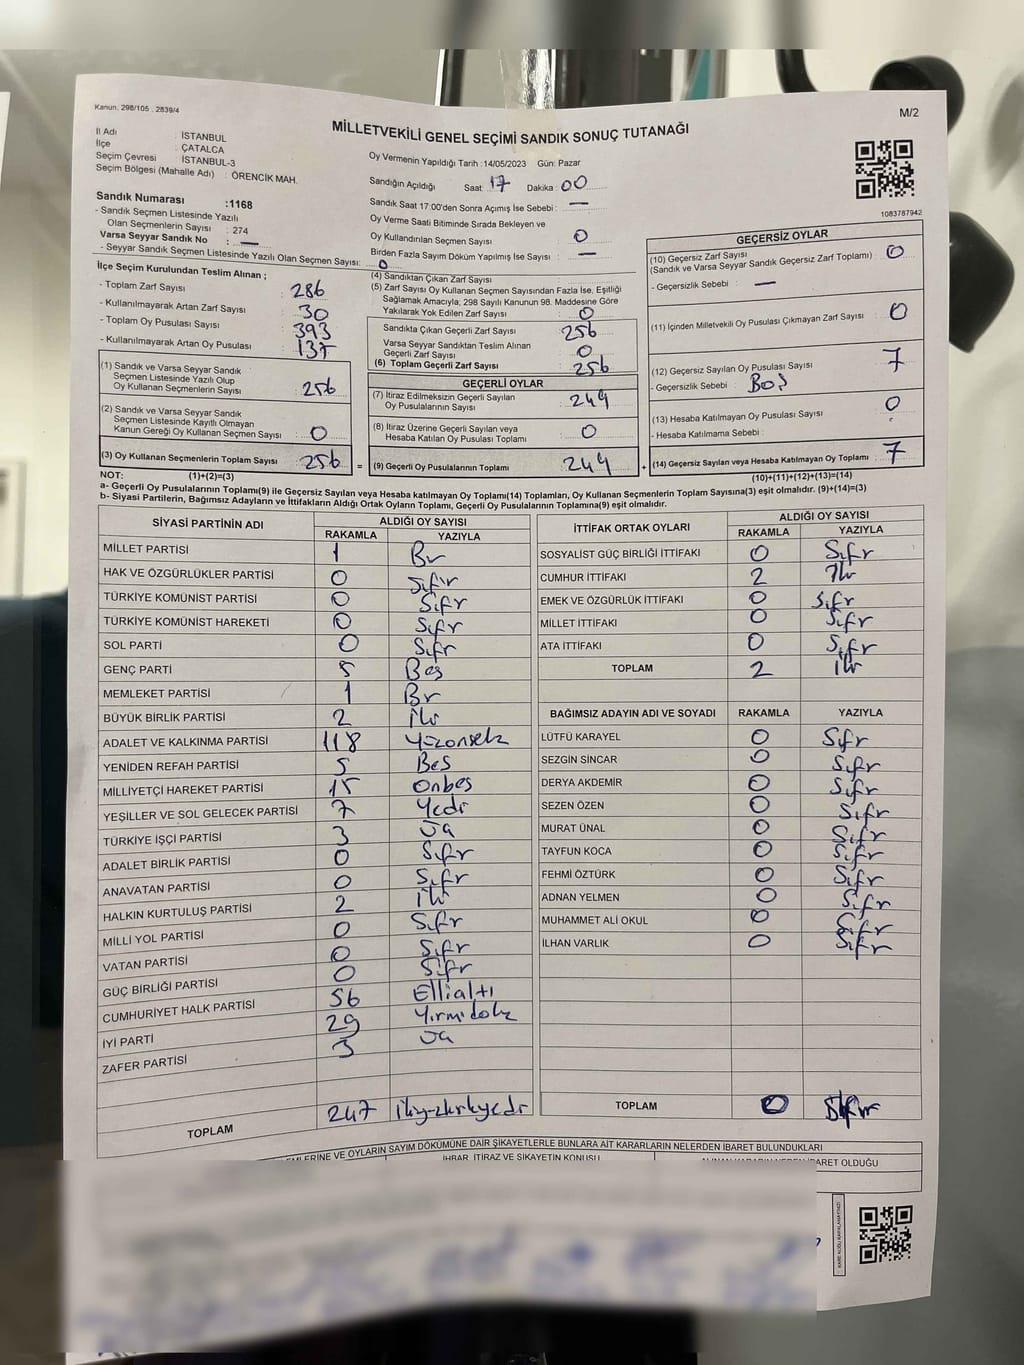 Kanun. 298/105 . 2839/4
M/2
MİLLETVEKİLİ GENEL SEÇİMİ SANDIK SONUÇ TUTANAĞI
İl Adı : İSTANBUL
İlçe : ÇATALCA
Seçim Çevresi : İSTANBUL-3
Seçim Bölgesi (Mahalle Adı) : ÖRENCİK MAH.
Sandık Numarası :1168
- Sandık Seçmen Listesinde Yazılı
Olan Seçmenlerin Sayısı : 274
Varsa Seyyar Sandık No : —
- Seyyar Sandık Seçmen Listesinde Yazılı Olan Seçmen Sayısı: 0
Oy Vermenin Yapıldığı Tarih :14/05/2023 Gün: Pazar
Sandığın Açıldığı Saat 17 Dakika : 00
Sandık Saat 17:00'den Sonra Açılmış İse Sebebi : —
Oy Verme Saati Bitiminde Sırada Bekleyen ve
Oy Kullandırılan Seçmen Sayısı : 0
Birden Fazla Sayım Döküm Yapılmış İse Sayısı : —
1083787942
İlçe Seçim Kurulundan Teslim Alınan ;
- Toplam Zarf Sayısı : 286
- Kullanılmayarak Artan Zarf Sayısı : 30
- Toplam Oy Pusulası Sayısı : 393
- Kullanılmayarak Artan Oy Pusulası : 137
(1) Sandık ve Varsa Seyyar Sandık
Seçmen Listesinde Yazılı Olup
Oy Kullanan Seçmenlerin Sayısı : 256
(2) Sandık ve Varsa Seyyar Sandık
Seçmen Listesinde Kayıtlı Olmayan
Kanun Gereği Oy Kullanan Seçmen Sayısı : 0
(3) Oy Kullanan Seçmenlerin Toplam Sayısı : 256 =
(4) Sandıktan Çıkan Zarf Sayısı
(5) Zarf Sayısı Oy Kullanan Seçmen Sayısından Fazla İse, Eşitliği
Sağlamak Amacıyla; 298 Sayılı Kanunun 98. Maddesine Göre
Yakılarak Yok Edilen Zarf Sayısı : 0
Sandıkta Çıkan Geçerli Zarf Sayısı : 256
Varsa Seyyar Sandıktan Teslim Alınan
Geçerli Zarf Sayısı : 0
(6) Toplam Geçerli Zarf Sayısı : 256
GEÇERLİ OYLAR
(7) İtiraz Edilmeksizin Geçerli Sayılan
Oy Pusulalarının Sayısı : 249
(8) İtiraz Üzerine Geçerli Sayılan veya
Hesaba Katılan Oy Pusulası Toplamı : 0
(9) Geçerli Oy Pusulalarının Toplamı : 249 +
GEÇERSİZ OYLAR
(10) Geçersiz Zarf Sayısı
(Sandık ve Varsa Seyyar Sandık Geçersiz Zarf Toplamı) : 0
- Geçersizlik Sebebi : —
(11) İçinden Milletvekili Oy Pusulası Çıkmayan Zarf Sayısı : 0
(12) Geçersiz Sayılan Oy Pusulası Sayısı : 7
- Geçersizlik Sebebi : BOŞ
(13) Hesaba Katılmayan Oy Pusulası Sayısı : 0
- Hesaba Katılmama Sebebi :
(14) Geçersiz Sayılan veya Hesaba Katılmayan Oy Toplamı : 7
NOT: (1)+(2)=(3)
(10)+(11)+(12)+(13)=(14)
a- Geçerli Oy Pusulalarının Toplamı(9) ile Geçersiz Sayılan veya Hesaba katılmayan Oy Toplamı(14) Toplamları, Oy Kullanan Seçmenlerin Toplam Sayısına(3) eşit olmalıdır. (9)+(14)=(3)
b- Siyasi Partilerin, Bağımsız Adayların ve İttifakların Aldığı Ortak Oyların Toplamı, Geçerli Oy Pusulalarının Toplamına(9) eşit olmalıdır.
SİYASİ PARTİNİN ADI ALDIĞI OY SAYISI
RAKAMLA YAZIYLA
MİLLET PARTİSİ 1 Bir
HAK VE ÖZGÜRLÜKLER PARTİSİ 0 Sıfır
TÜRKİYE KOMÜNİST PARTİSİ 0 Sıfır
TÜRKİYE KOMÜNİST HAREKETİ 0 Sıfır
SOL PARTİ 0 Sıfır
GENÇ PARTİ 5 Beş
MEMLEKET PARTİSİ 1 Bir
BÜYÜK BİRLİK PARTİSİ 2 iki
ADALET VE KALKINMA PARTİSİ 118 Yüzonsekiz
YENİDEN REFAH PARTİSİ 5 Beş
MİLLİYETÇİ HAREKET PARTİSİ 15 Onbeş
YEŞİLLER VE SOL GELECEK PARTİSİ 7 Yedi
TÜRKİYE İŞÇİ PARTİSİ 3 Üç
ADALET BİRLİK PARTİSİ 0 Sıfır
ANAVATAN PARTİSİ 0 Sıfır
HALKIN KURTULUŞ PARTİSİ 2 iki
MİLLİ YOL PARTİSİ 0 Sıfır
VATAN PARTİSİ 0 Sıfır
GÜÇ BİRLİĞİ PARTİSİ 0 Sıfır
CUMHURİYET HALK PARTİSİ 56 Ellialtı
İYİ PARTİ 29 Yirmidokuz
ZAFER PARTİSİ 3 Üç
TOPLAM 247 ikiyüzkırkyedi
İTTİFAK ORTAK OYLARI ALDIĞI OY SAYISI
RAKAMLA YAZIYLA
SOSYALİST GÜÇ BİRLİĞİ İTTİFAKI 0 Sıfır
CUMHUR İTTİFAKI 2 İki
EMEK VE ÖZGÜRLÜK İTTİFAKI 0 Sıfır
MİLLET İTTİFAKI 0 Sıfır
ATA İTTİFAKI 0 Sıfır
TOPLAM 2 iki
BAĞIMSIZ ADAYIN ADI VE SOYADI RAKAMLA YAZIYLA
LÜTFÜ KARAYEL 0 Sıfır
SEZGİN SİNCAR 0 Sıfır
DERYA AKDEMİR 0 Sıfır
SEZEN ÖZEN 0 Sıfır
MURAT ÜNAL 0 Sıfır
TAYFUN KOCA 0 Sıfır
FEHMİ ÖZTÜRK 0 Sıfır
ADNAN YELMEN 0 Sıfır
MUHAMMET ALİ OKUL 0 Sıfır
İLHAN VARLIK 0 Sıfır
TOPLAM 0 Sıfır
VE OYLARIN SAYIM DÖKÜMÜNE DAİR ŞİKAYETLERLE BUNLARA AİT KARARLARIN NELERDEN İBARET BULUNDUKLARI
İHBAR, İTİRAZ VE ŞİKAYETİN KONUSU
İBARET OLDUĞU